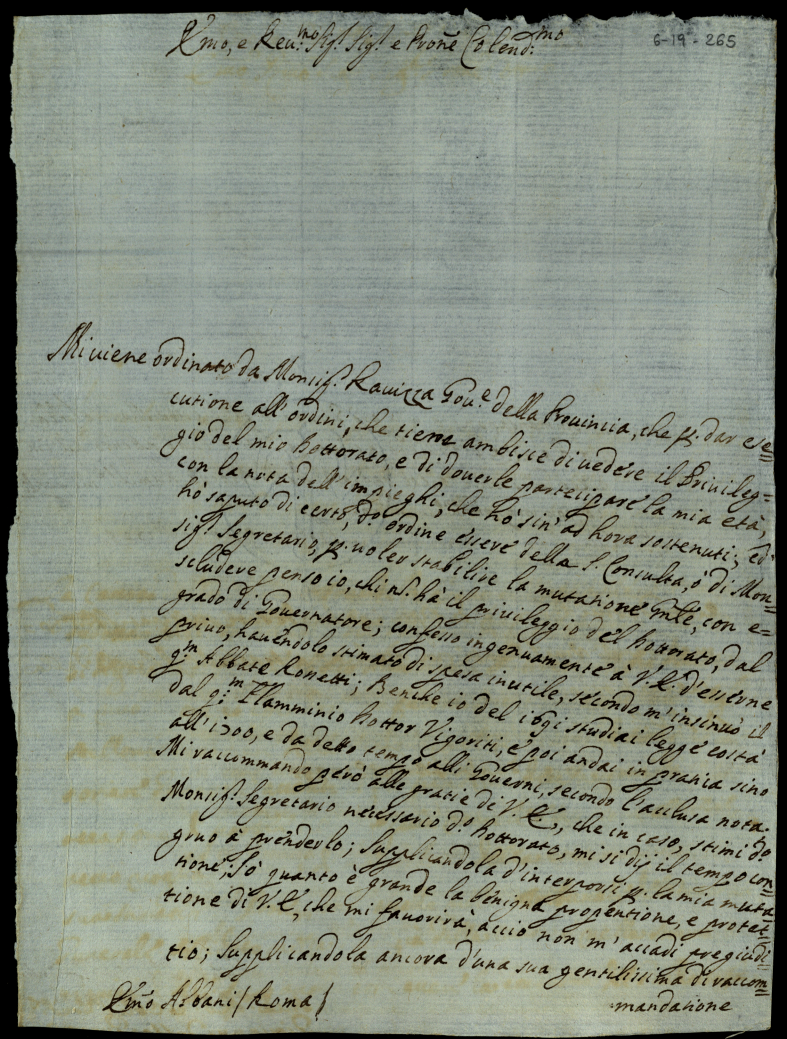 6-19-265
E.mo, e Reu.mo Sig.r Sig.r e Prone Colend.mo
Mi uiene ordinato da Monsig.r Rauizza Gou.e della Prouincia, che p. dar ese=
cutione all'ordini, che tiene ambisce di uedere il Priuileg=
gio del mio Dottorato, e di douerle partecipare la mia età,
con la nota dell'impieghi, che hò sin' ad hora sostenuti; ed'
hò saputo di certo, d.o ordine essere della S. Consulta, ò di Mon=
sig.r Segretario, p. uoler stabilire la mutatione Gnle, con e=
scludere penso io, chi nò hà il priuileggio del Dottorato, dal
grado di Gouernatore; confesso ingenuamente à V.E. d'esserne
priuo, hauendolo stimato di spesa inutile, secondo m'insinuò il
q.m Abbate Ronetti; Benche io del 1691 studiai legge costà
dal q.m Flamminio Dottor Vigoriti, e poi andai in pratica sino
all'1700, e da detto tempo alli Gouerni, secondo l'acclusa nota.
Mi raccommando però alle gratie di V.E., che in caso, stimi d.o
Monsig.r Segretario necessario d.o Dottorato, mi si dij il tempo con=
gruo à prenderlo; Supplicandola d'interporsi p. la mia muta=
tione; Sò quanto è grande la benigna propentione, e protet=
tione di V.E., che mi fauorirà, acciò non m'accadi pregiudi=
tio; Supplicandola ancora d'una sua gentilissima di raccom=
mandatione
E.mo Albani / Roma /